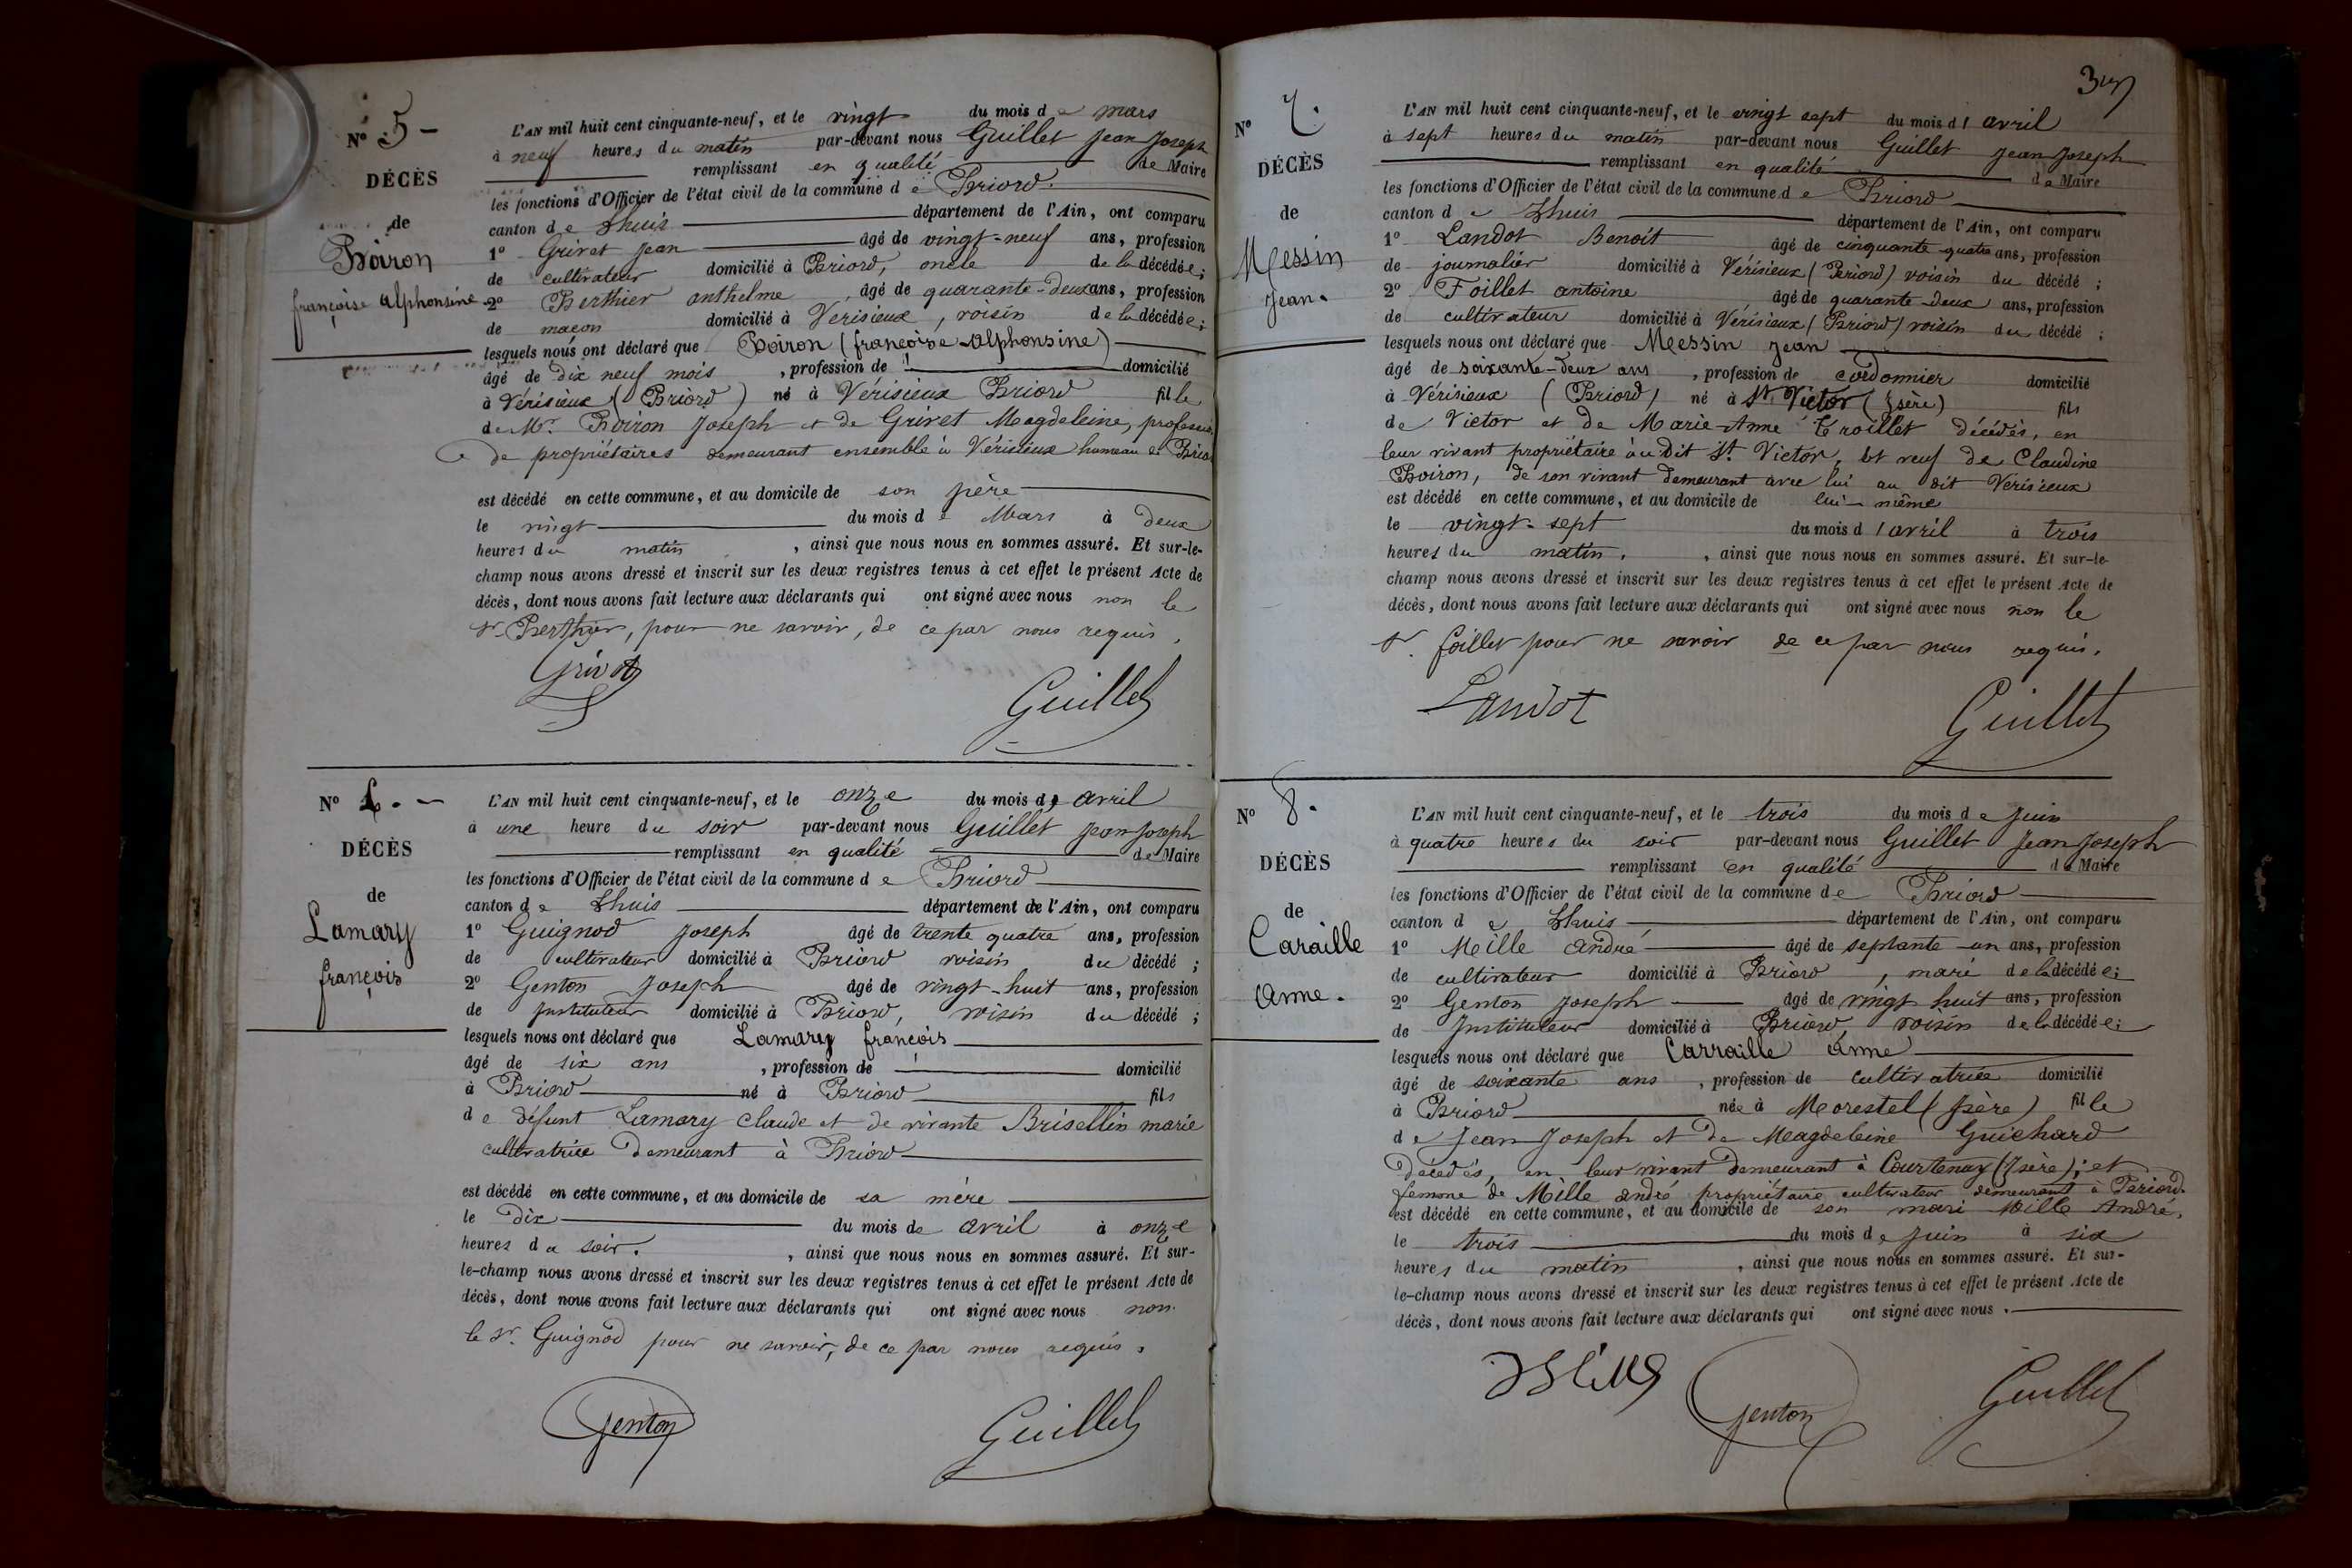 N° 5 -
DÉCÈS
de
Boiron
françoise alphonsine
L'AN mil huit cent cinquante-neuf, et le vingt du mois de mars
à neuf heures du matin par-devant nous Guillet Jean Joseph
remplissant en qualité de Maire
les fonctions d'Officier de l'état civil de la commune de Briord
canton de Lhuis département de l'Ain, ont comparu
1° Grivet Jean âgé de vingt-neuf ans, profession
de cultivateur domicilié à Briord, oncle de la décédée;
2° Berthier anthelme, âgé de quarante-deux ans, profession
de maçon domicilié à Verisieux, voisin de la décédée;
lesquels nous ont déclaré que Boiron (françoise-alphonsine)
âgé de dix neuf mois, profession de domicilié
à Vérisieux (Briord) né à Vérisieux Briord fille
de Mr. Boiron Joseph et de Grivet Magdeleine, profession
de propriétaires demeurant ensemble à Vérisieux hameau de Briord
est décédé en cette commune, et au domicile de son père
le vingt du mois de Mars à deux
heures du matin, ainsi que nous nous en sommes assuré. Et sur-le-
champ nous avons dressé et inscrit sur les deux registres tenus à cet effet le présent Acte de
décès, dont nous avons fait lecture aux déclarants qui ont signé avec nous non le
Sr. Berthier, pour ne savoir, de ce par nous requis.
Grivet Guillet
N° 6. -
DÉCÈS
de
Lamary
françois
L'AN mil huit cent cinquante-neuf, et le onze du mois d' avril
à une heure du soir par-devant nous Guillet Jean Joseph
remplissant en qualité de Maire
les fonctions d'Officier de l'état civil de la commune de Briord
canton de Lhuis département de l'Ain, ont comparu
1° Guignod Joseph âgé de trente quatre ans, profession
de cultivateur domicilié à Briord voisin du décédé;
2° Genton Joseph âgé de vingt-huit ans, profession
de Instituteur domicilié à Briord, voisin du décédé;
lesquels nous ont déclaré que Lamary françois
âgé de six ans, profession de domicilié
à Briord né à Briord fils
de défunt Lamary Claude et de vivante Brisellin marie
cultivatrice demeurant à Briord
est décédé en cette commune, et au domicile de sa mère
le dix du mois de avril à onze
heures du soir., ainsi que nous nous en sommes assuré. Et sur-
le-champ nous avons dressé et inscrit sur les deux registres tenus à cet effet le présent Acte de
décès, dont nous avons fait lecture aux déclarants qui ont signé avec nous non
le Sr. Guignod pour ne savoir, de ce par nous requis.
Genton Guillet
N° 7.
DÉCÈS
de
Messin
Jean.
L'AN mil huit cent cinquante-neuf, et le vingt sept du mois d'avril
à sept heures du matin par-devant nous Guillet Jean Joseph
remplissant en qualité de Maire
les fonctions d'Officier de l'état civil de la commune de Briord
canton de Lhuis département de l'Ain, ont comparu
1° Landot Benoît âgé de cinquante-quatre ans, profession
de journalier domicilié à Vérisieux (Briord) voisin du décédé;
2° Foillet antoine âgé de quarante-deux ans, profession
de cultivateur domicilié à Vérisieux (Briord) voisin du décédé;
lesquels nous ont déclaré que Messin Jean
âgé de soixante-deux ans, profession de cordonnier domicilié
à Vérisieux (Briord) né à St. Victor (Isère) fils
de Victor et de Marie-Anne Troillet décédés, en
leur vivant propriétaire au dit St. Victor, et veuf de Claudine
Boiron, de son vivant demeurant avec lui au dit Verisieux
est décédé en cette commune, et au domicile de lui-même
le vingt-sept du mois d'avril à trois
heures du matin., ainsi que nous nous en sommes assuré. Et sur-le-
champ nous avons dressé et inscrit sur les deux registres tenus à cet effet le présent Acte de
décès, dont nous avons fait lecture aux déclarants qui ont signé avec nous non le
Sr. foillet pour ne savoir de ce par nous requis.
Landot Guillet
N° 8.
DÉCÈS
de
Caraille
Anne.
L'AN mil huit cent cinquante-neuf, et le trois du mois de Juin
à quatre heures du soir par-devant nous Guillet Jean Joseph
remplissant en qualité de Maire
les fonctions d'Officier de l'état civil de la commune de Briord
canton de Lhuis département de l'Ain, ont comparu
1° Meille André âgé de septante-un ans, profession
de cultivateur domicilié à Briord, mari de la décédée;
2° Genton Joseph âgé de vingt huit ans, profession
de Instituteur domicilié à Briord, voisin de la décédée;
lesquels nous ont déclaré que Carraille Anne
âgé de soixante ans, profession de cultivatrice domicilié
à Briord née à Morestel (Isère) fille
de Jean Joseph et de Magdeleine Guichard
décédés, en leur vivant demeurant à Courtenay (Isère); et
femme de Mille André propriétaire cultivateur demeurant à Briord.
est décédé en cette commune, et au domicile de son mari Mille André.
le trois du mois de Juin à six
heures du matin, ainsi que nous nous en sommes assuré. Et sur-
le-champ nous avons dressé et inscrit sur les deux registres tenus à cet effet le présent Acte de
décès, dont nous avons fait lecture aux déclarants qui ont signé avec nous.
Genton Guillet